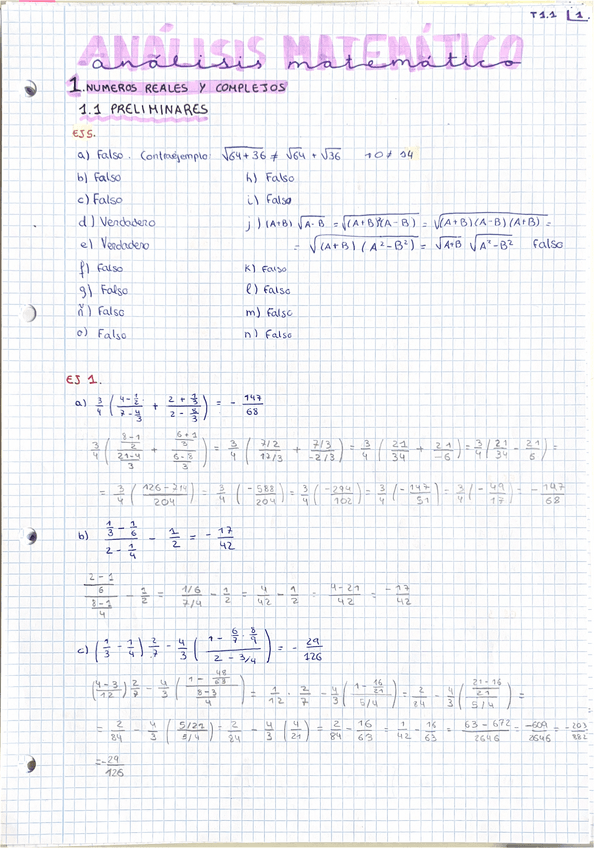 T 1.1 1.
ANÁLISIS MATEMÁTICO
análisis matemático
1. NUMEROS REALES Y COMPLEJOS
1.1 PRELIMINARES
EJ5.
a) Falso. Contraejemplo: √64+36 ≠ √64 + √36 10 ≠ 14
b) Falso h) Falso
c) Falso i) Falso
d) Verdadero j) (A+B) √A-B = √(A+B)²(A-B) = √(A+B)(A-B)(A+B) =
e) Verdadero = √(A+B)(A²-B²) = √A+B √A²-B² falso
f) Falso k) Falso
g) Falso l) Falso
ñ) Falso m) Falso
o) Falso n) Falso
EJ 1.
a) 3/4 ( (4-1/2)/(7-4/3) + (2+1/3)/(2-8/3) ) = - 147/68
3/4 ( ((8-1)/2)/((21-4)/3) + ((6+1)/3)/((6-8)/3) ) = 3/4 ( (7/2)/(17/3) + (7/3)/(-2/3) ) = 3/4 ( 21/34 + 21/-6 ) = 3/4 ( 21/34 - 21/6 ) =
= 3/4 ( (126-714)/204 ) = 3/4 ( -588/204 ) = 3/4 ( -294/102 ) = 3/4 ( -147/51 ) = 3/4 ( -49/17 ) = -147/68
b) (1/3 - 1/6)/(2 - 1/4) - 1/2 = - 17/42
((2-1)/6)/((8-1)/4) - 1/2 = (1/6)/(7/4) - 1/2 = 4/42 - 1/2 = (4-21)/42 = -17/42
c) (1/3 - 1/4) 2/7 - 4/3 ( (1 - 6/7 · 8/9)/(2 - 3/4) ) = - 29/126
((4-3)/12) 2/7 - 4/3 ( (1 - 48/63)/((8-3)/4) ) = 1/12 · 2/7 - 4/3 ( (1 - 16/21)/(5/4) ) = 2/84 - 4/3 ( ((21-16)/21)/(5/4) ) =
= 2/84 - 4/3 ( (5/21)/(5/4) ) = 2/84 - 4/3 ( 4/21 ) = 2/84 - 16/63 = 1/42 - 16/63 = (63-672)/2646 = -609/2646 = -203/882
= -29/126